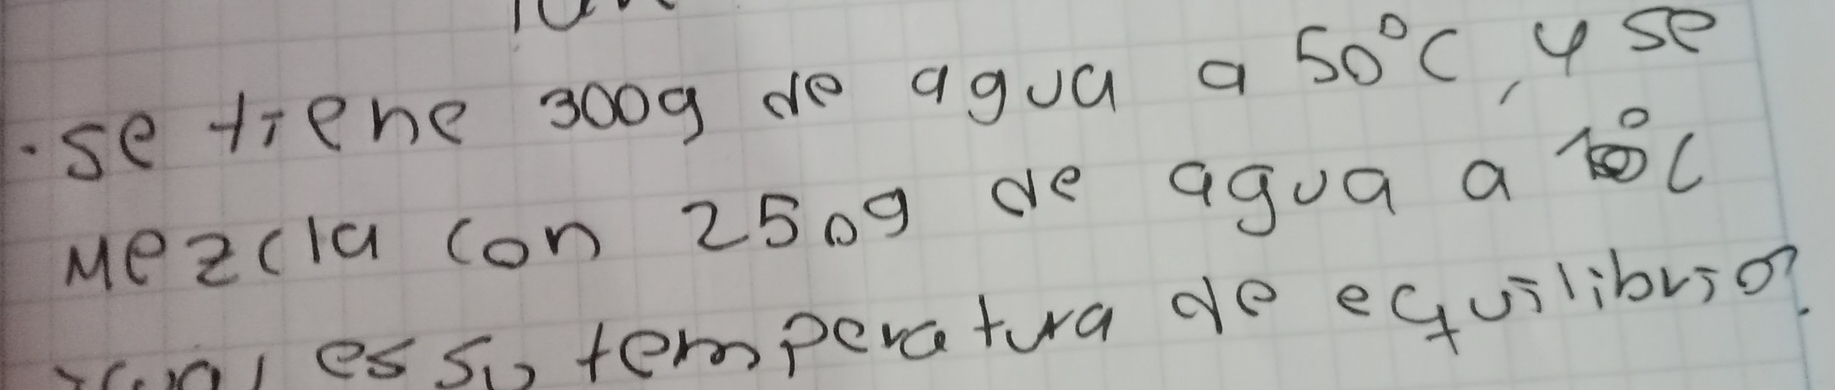 · se tiene 300g de agua a 50°C, y se
Mezcla con 250g de agua a 10°C
es su temperatura de equilibrio?